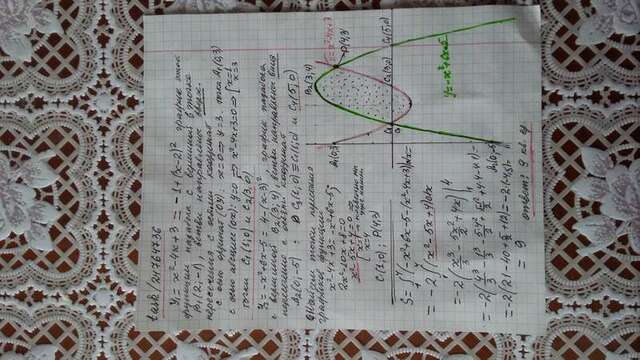 task/24764736
y₁ = x²-4x+3 = -1+(x-2)² график этой
функции парабола с вершиной в точке
B₁(2;-1), ветви направлены вверх.
пересечения с осями координат
с осью ординат (oy): x=0 ⇒ y=3. точка A₁(0;3)
с осью абсцисс (ox): y=0 ⇒ x²-4x+3=0 ⇒ [x=1 x=3
точки C₁(1;0) и C₂(3;0)
y₂ = -x²+6x-5 = 4-(x-3)². график парабола
с вершиной B₂(3;4), ветви направлены вниз
пересечение с осями координат
A₂(0;-5) C₁(1;0) и C₄(5;0)
Найдем точки пересечения
графиков функции
x²-4x+3 = -x²+6x-5;
2x²-10x+8=0
x²-5x+4=0 ⇒
[x=1 x=4
C₁(1;0), P(4;3)
S = ∫₁⁴(-x²+6x-5-(x²-4x+3))dx =
= -2∫₁⁴(x²-5x+4)dx
= -2(x³/3 - 5x²/2 + 4x)|₁⁴
= -2(4³/3 - 1³/3 - 5·4²/2 + 5·1²/2 + 4·4-4·1) =
= -2(21-40+5/2+12) = -2·(-4,5) =
= 9
ответ: 9 кв. ед
B₂(3;4)
A₁(0;3)
y=x²-4x+3
P(4;3)
C₁
C₂(3;0)
C₄(5;0)
y=-x²+6x-5
A₂(0;-5)